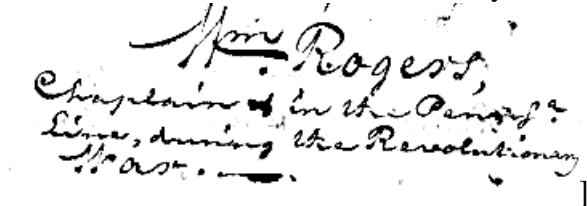 Wm Rogers,
Chaplain in the Pennsya
Line, during the Revolutionary
War.
]